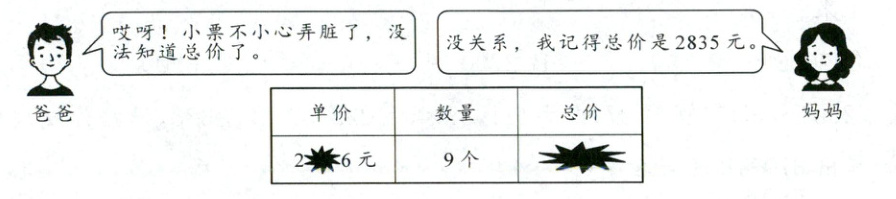 哎呀！小票不小心弄脏了，没
法知道总价了。
没关系，我记得总价是2835元。
爸爸
妈妈
单价 数量 总价
2 6元 9个